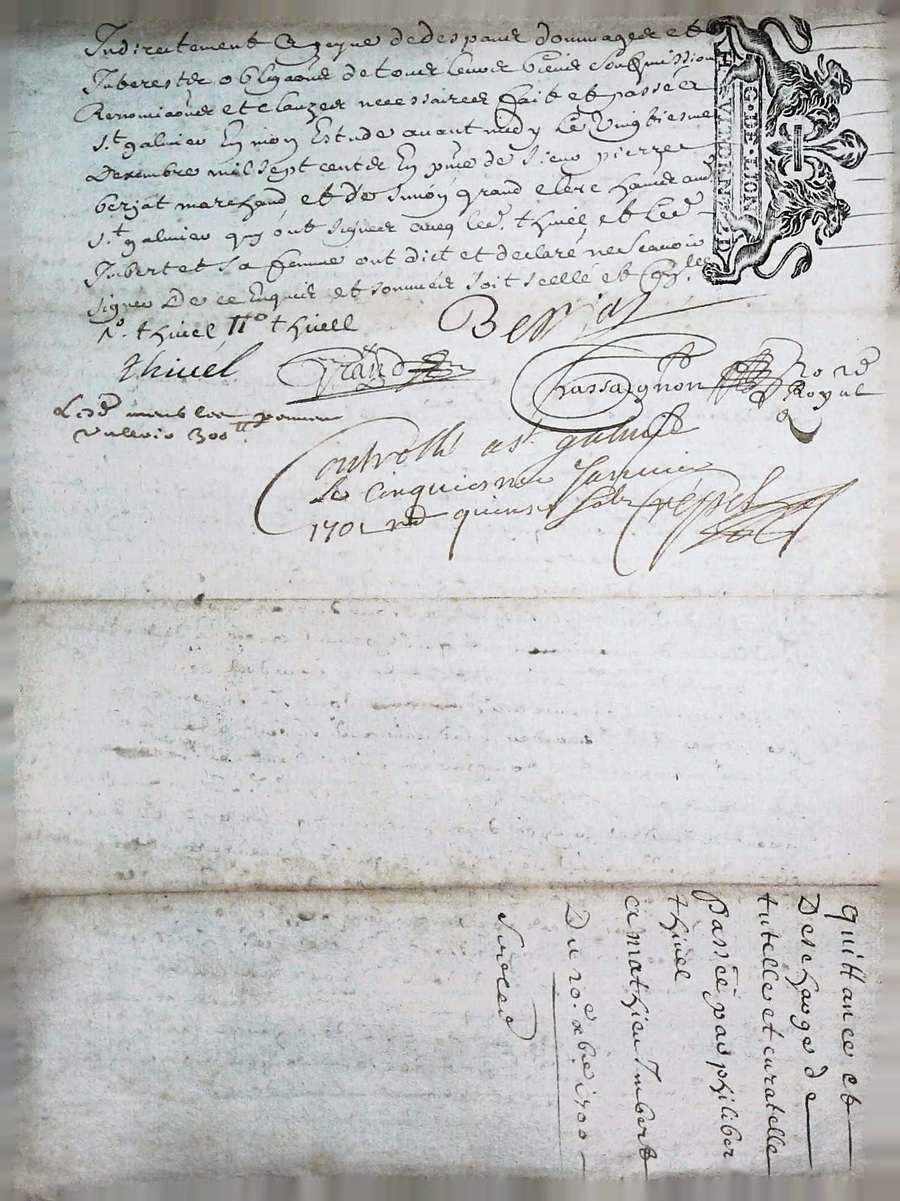 Indirectement a peyne de despans dommages et
Interestz obligaons de tous leurs biens soubzmissions
Renonciaons et clauzes necessaires fait et passé a
St galmier En mon Estude avant midy Le Vingtiesme
Decembre mil sept centz En pnce de sieur pierre
berjat marchand et de simon grand clerc
St galmier quy ont signez avec led. thivel et led
Imbert et sa femme ont dict et declaré ne scavoir
signer De ce Enquis et sommés soit scellé
thivel IIo thivell
thivel Grand Chassaignon Nore
Royal
Led meubles
valleur 300 ll
Controllé a st galmier
Le cinquiesme Janvier
1701 quinse solz Crepet
G. DE LION
quittance et
Descharge de
tutelle et curatelle
passée par philiber
thivel
a mathieu Imbert
Du 20e xbre 1700